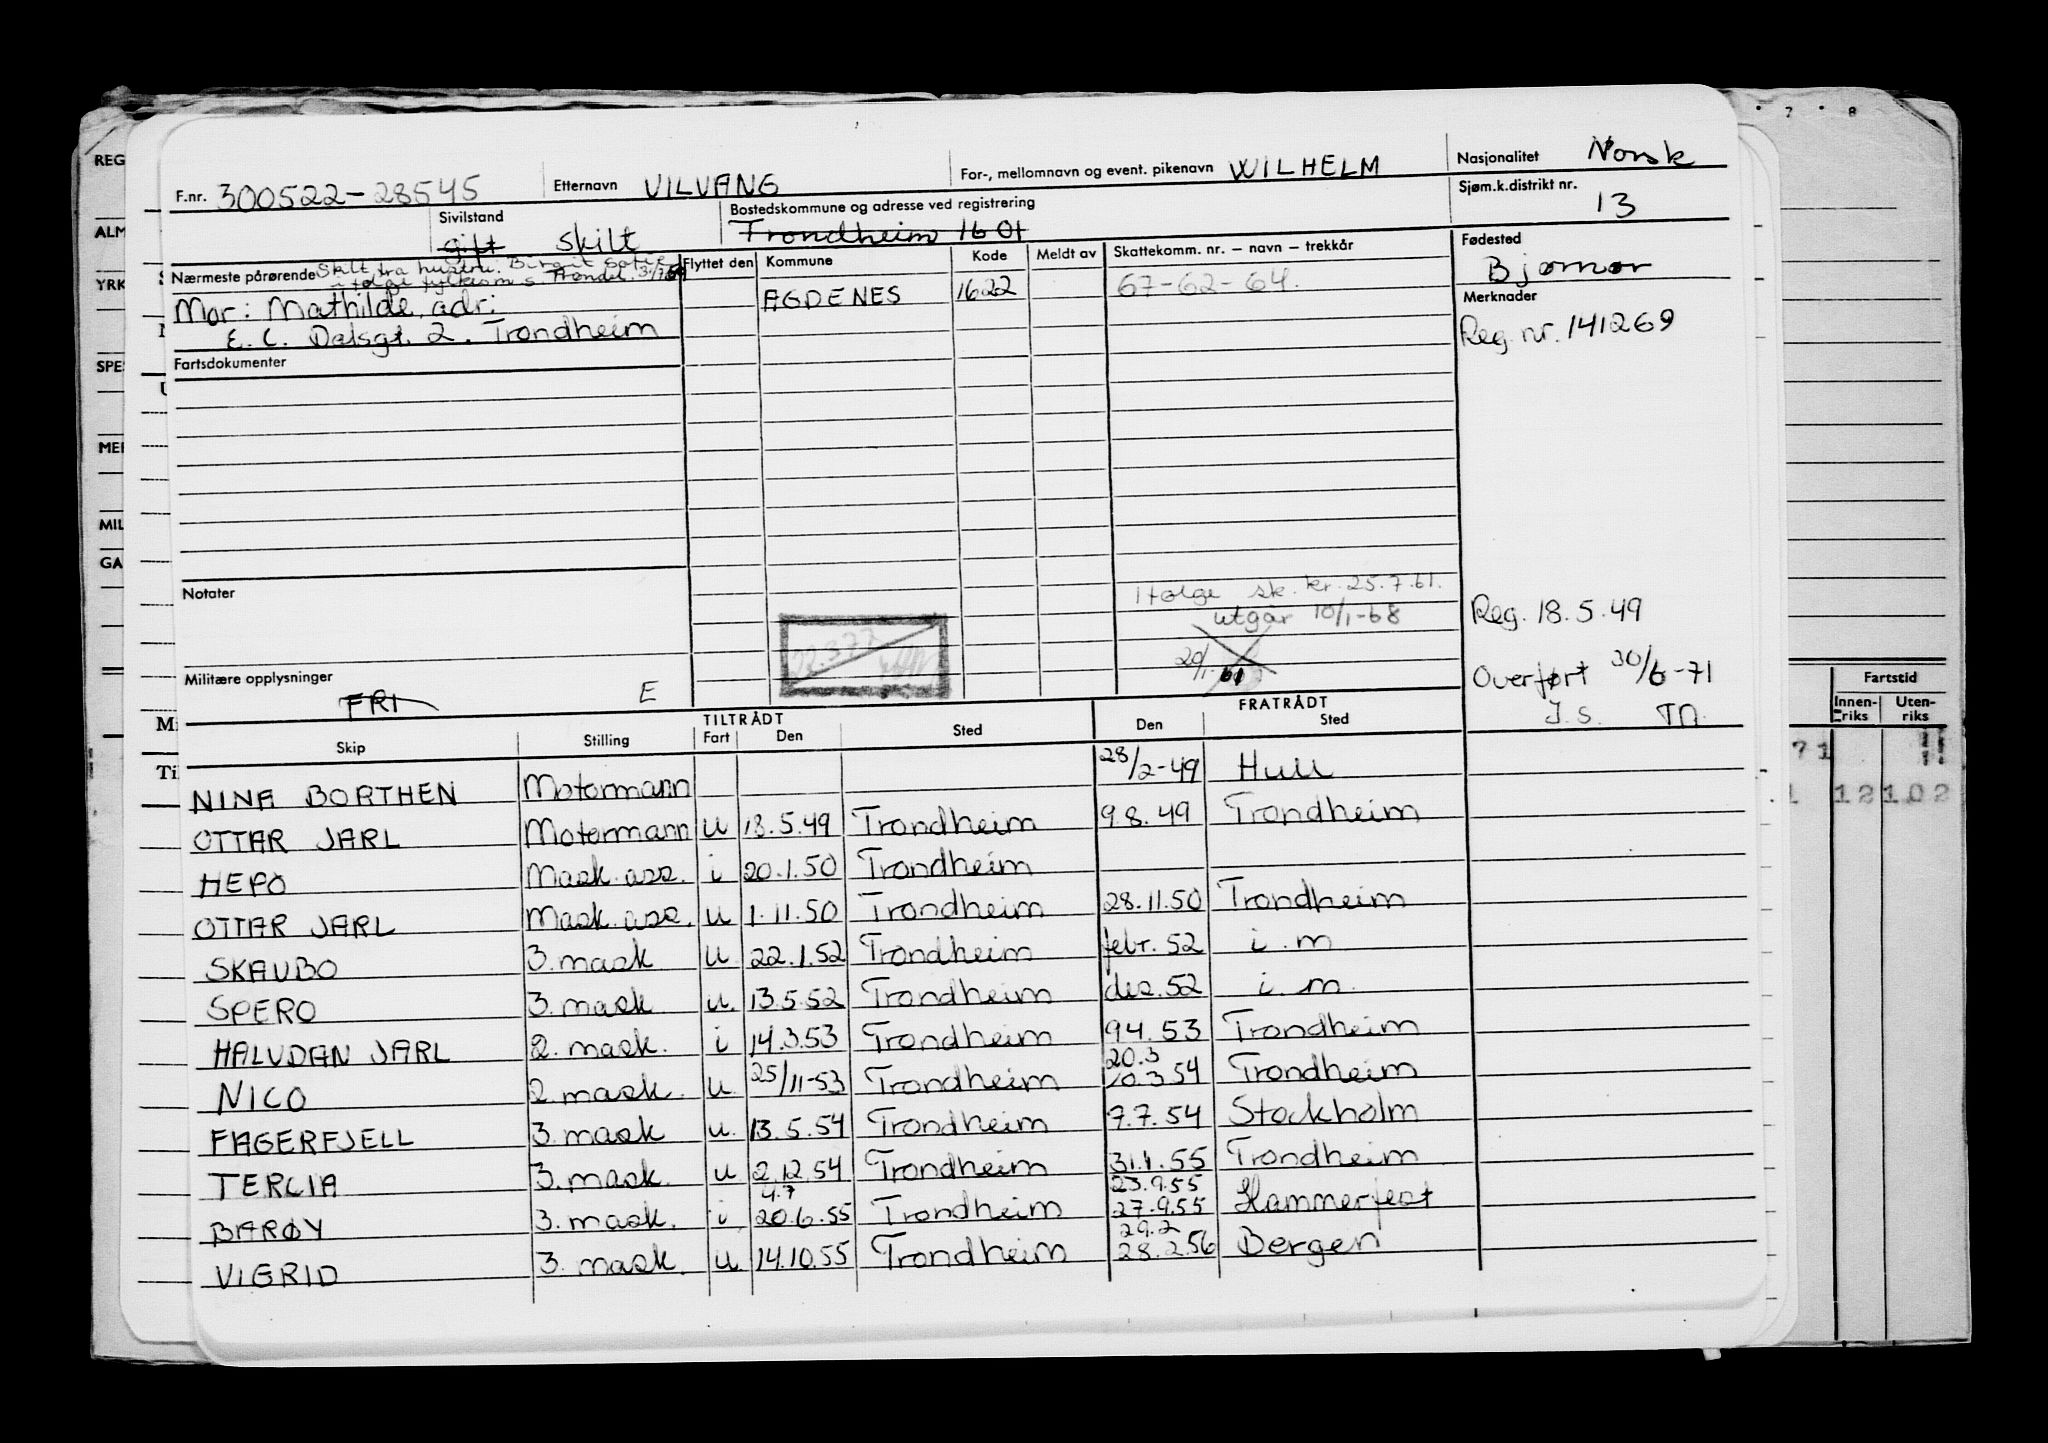 7 8
REG
ALM
YRK
SPES
MER
MIL
GA
F.nr. 300522-28545 Etternavn VILVANG For-, mellomnavn og event. pikenavn WILHELM Nasjonalitet Norsk
Sivilstand gift skilt Bostedskommune og adresse ved registrering Trondheim 1601 Sjøm.k.distrikt nr. 13
Nærmeste pårørende Skilt fra hustru. Birgit Sofie
i følge fylkesm s. Trøndel.
Mor: Mathilde adr:
E. C. Dalsgt. 2. Trondheim
Flyttet den Kommune Kode Meldt av Skattekomm. nr. – navn – trekkår Fødested
AGDENES 1622 67-62-64. Bjørnør
Merknader
Reg. nr. 141269
Fartsdokumenter
Notater
Ifølge sk. kr. 25.7.61.
utgår 10/1-68
20/1. 61
Reg. 18.5.49
Overført 30/6-71
J.S.
Militære opplysninger
FRI E
TILTRÅDT FRATRÅDT
Skip Stilling Fart Den Sted Den Sted
NINA BORTHEN Motormann 28/2-49 Hull
OTTAR JARL Motormann u 18.5.49 Trondheim 9.8.49 Trondheim
HEPO Mask.ass. i 20.1.50 Trondheim
OTTAR JARL Mask.ass. u 1.11.50 Trondheim 28.11.50 Trondheim
SKAUBO 3. mask u 22.1.52 Trondheim febr. 52 i. m
SPERO 3. mask u. 13.5.52 Trondheim des. 52 i. m.
HALVDAN JARL 2. mask. i 14.3.53 Trondheim 9.4.53 Trondheim
NICO 2. mask. u. 25/11-53 Trondheim 20.3 10.3.54 Trondheim
FAGERFJELL 3. mask u. 13.5.54 Trondheim 7.7.54 Stockholm
TERCIA 3. mask. u 2.12.54 Trondheim 31.1.55 Trondheim
BARØY 3. mask. i 4.7 20.6.55 Trondheim 23.9.55 27.9.55 Hammerfest
VIGRID 3. mask. u. 14.10.55 Trondheim 29.2 28.2.56 Bergen
Fartstid
Innenriks Utenriks
71 11
12 102